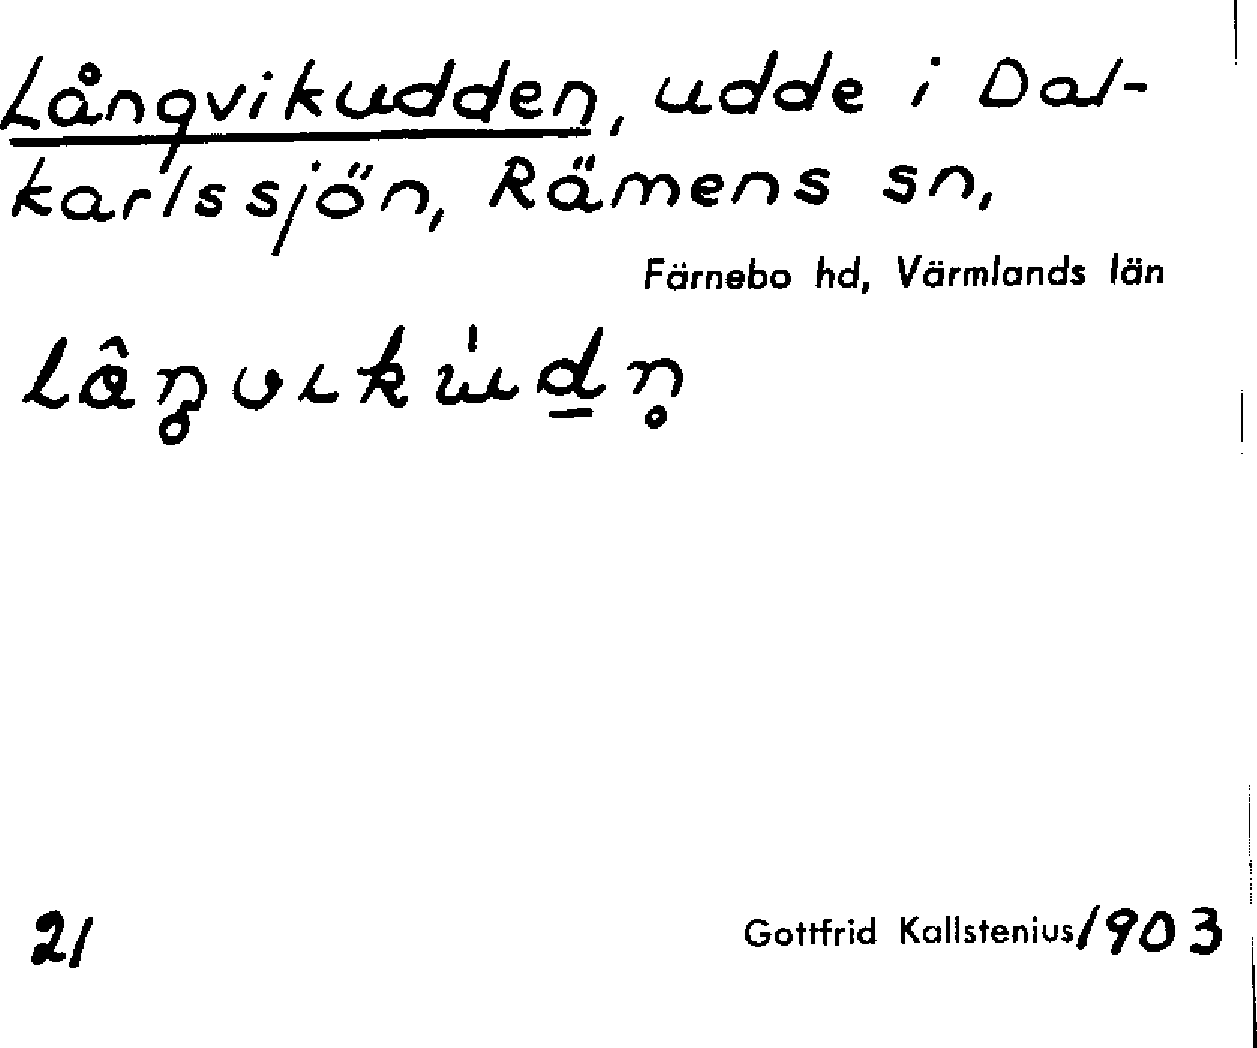 Långvikudden, udde i Dal-
karlssjön, Rämens sn,
Färnebo hd, Värmlands län
21
Gottfrid Kallstenius 1903